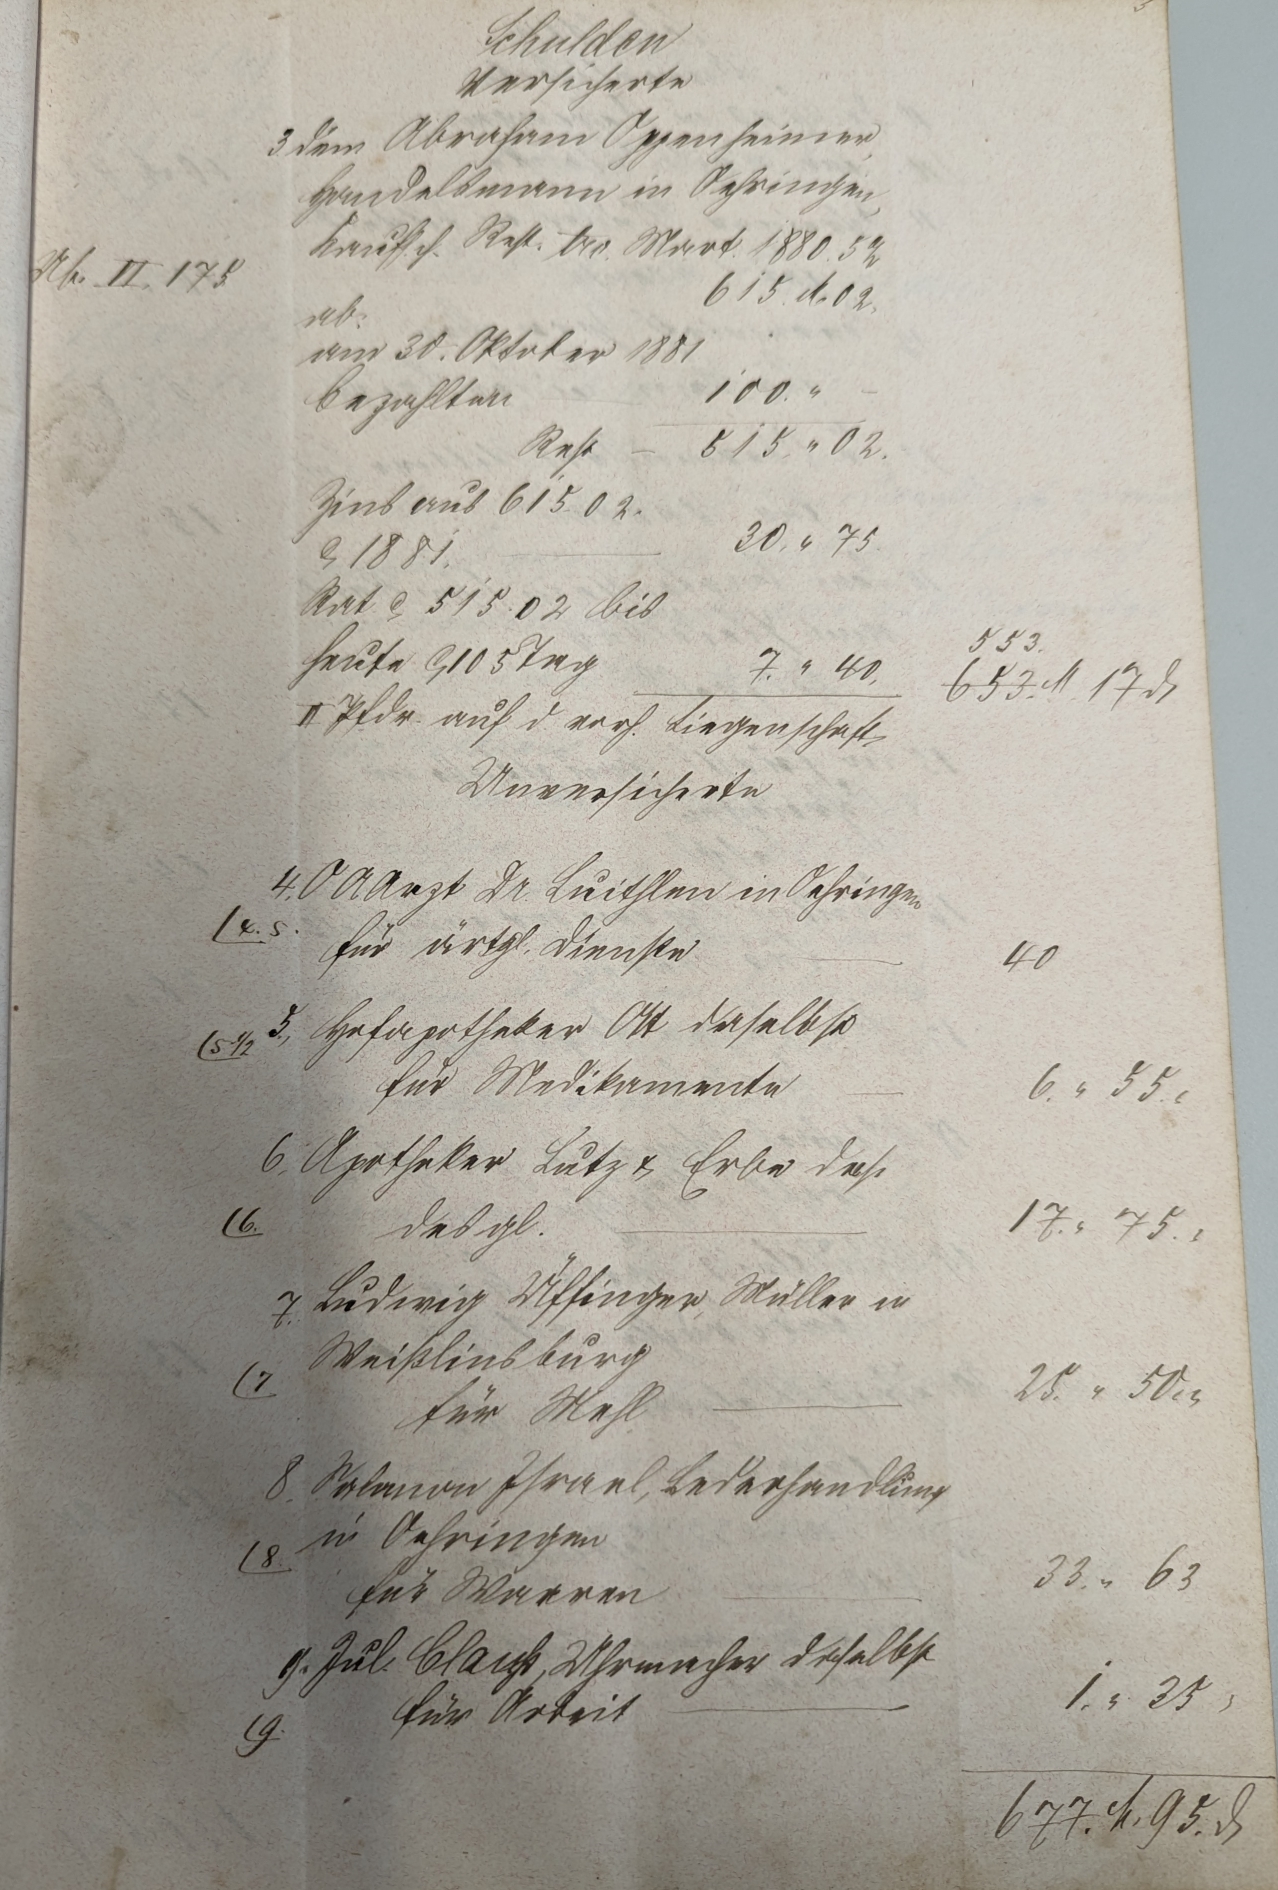 Schulden
Versicherte
3 dem Abraham Oppenheimer,
Handelsmann in Oehringen,
Kaufsch. Rest. Mart. 1880. 5%
Ub. II. 175
615. M. 02.
ab:
am 30. Oktober 1881
bezahlten 100. " –
Rest – 515. " 02.
Zins aus 615. 02.
1881. 30. " 75.
Rat. 515. 02 bis
heute 105 Tag 7. " 40.
553.
653. M 17 d
II Pfdr. auf d. vorh. Liegenschaft
Unversicherte
4. OAArzt Dr. Luithlen in Oehringen
(4. 5.
für ärtzl. Dienste 40
5., Hofapotheker Ott daselbst
(5 1/2
für Medikamente 6. " 55. "
6. Apotheker Lutz & Erbe das.
(6. desgl. 17. " 75. "
7. Ludwig Üffinger, Müller in
Weißlinsburg
(7
für Mehl 25. " 50. "
8. Salamon Israel, Lederhandlung
in Oehringen
(8.
für Waaren 33. " 63
9. Jul. Uhrmacher daselbst
für Arbeit 1. " 35 "
(9.
677. M. 95. d